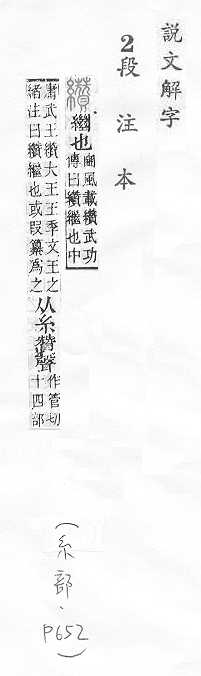 説文解字
2段注本
纘繼也豳風載纘武功
傳曰纘繼也中
庸武王纘大王王季文王之
緒注曰纘繼也或叚纂爲之
从糸贊聲作管切
十四部
(糸部、P652)